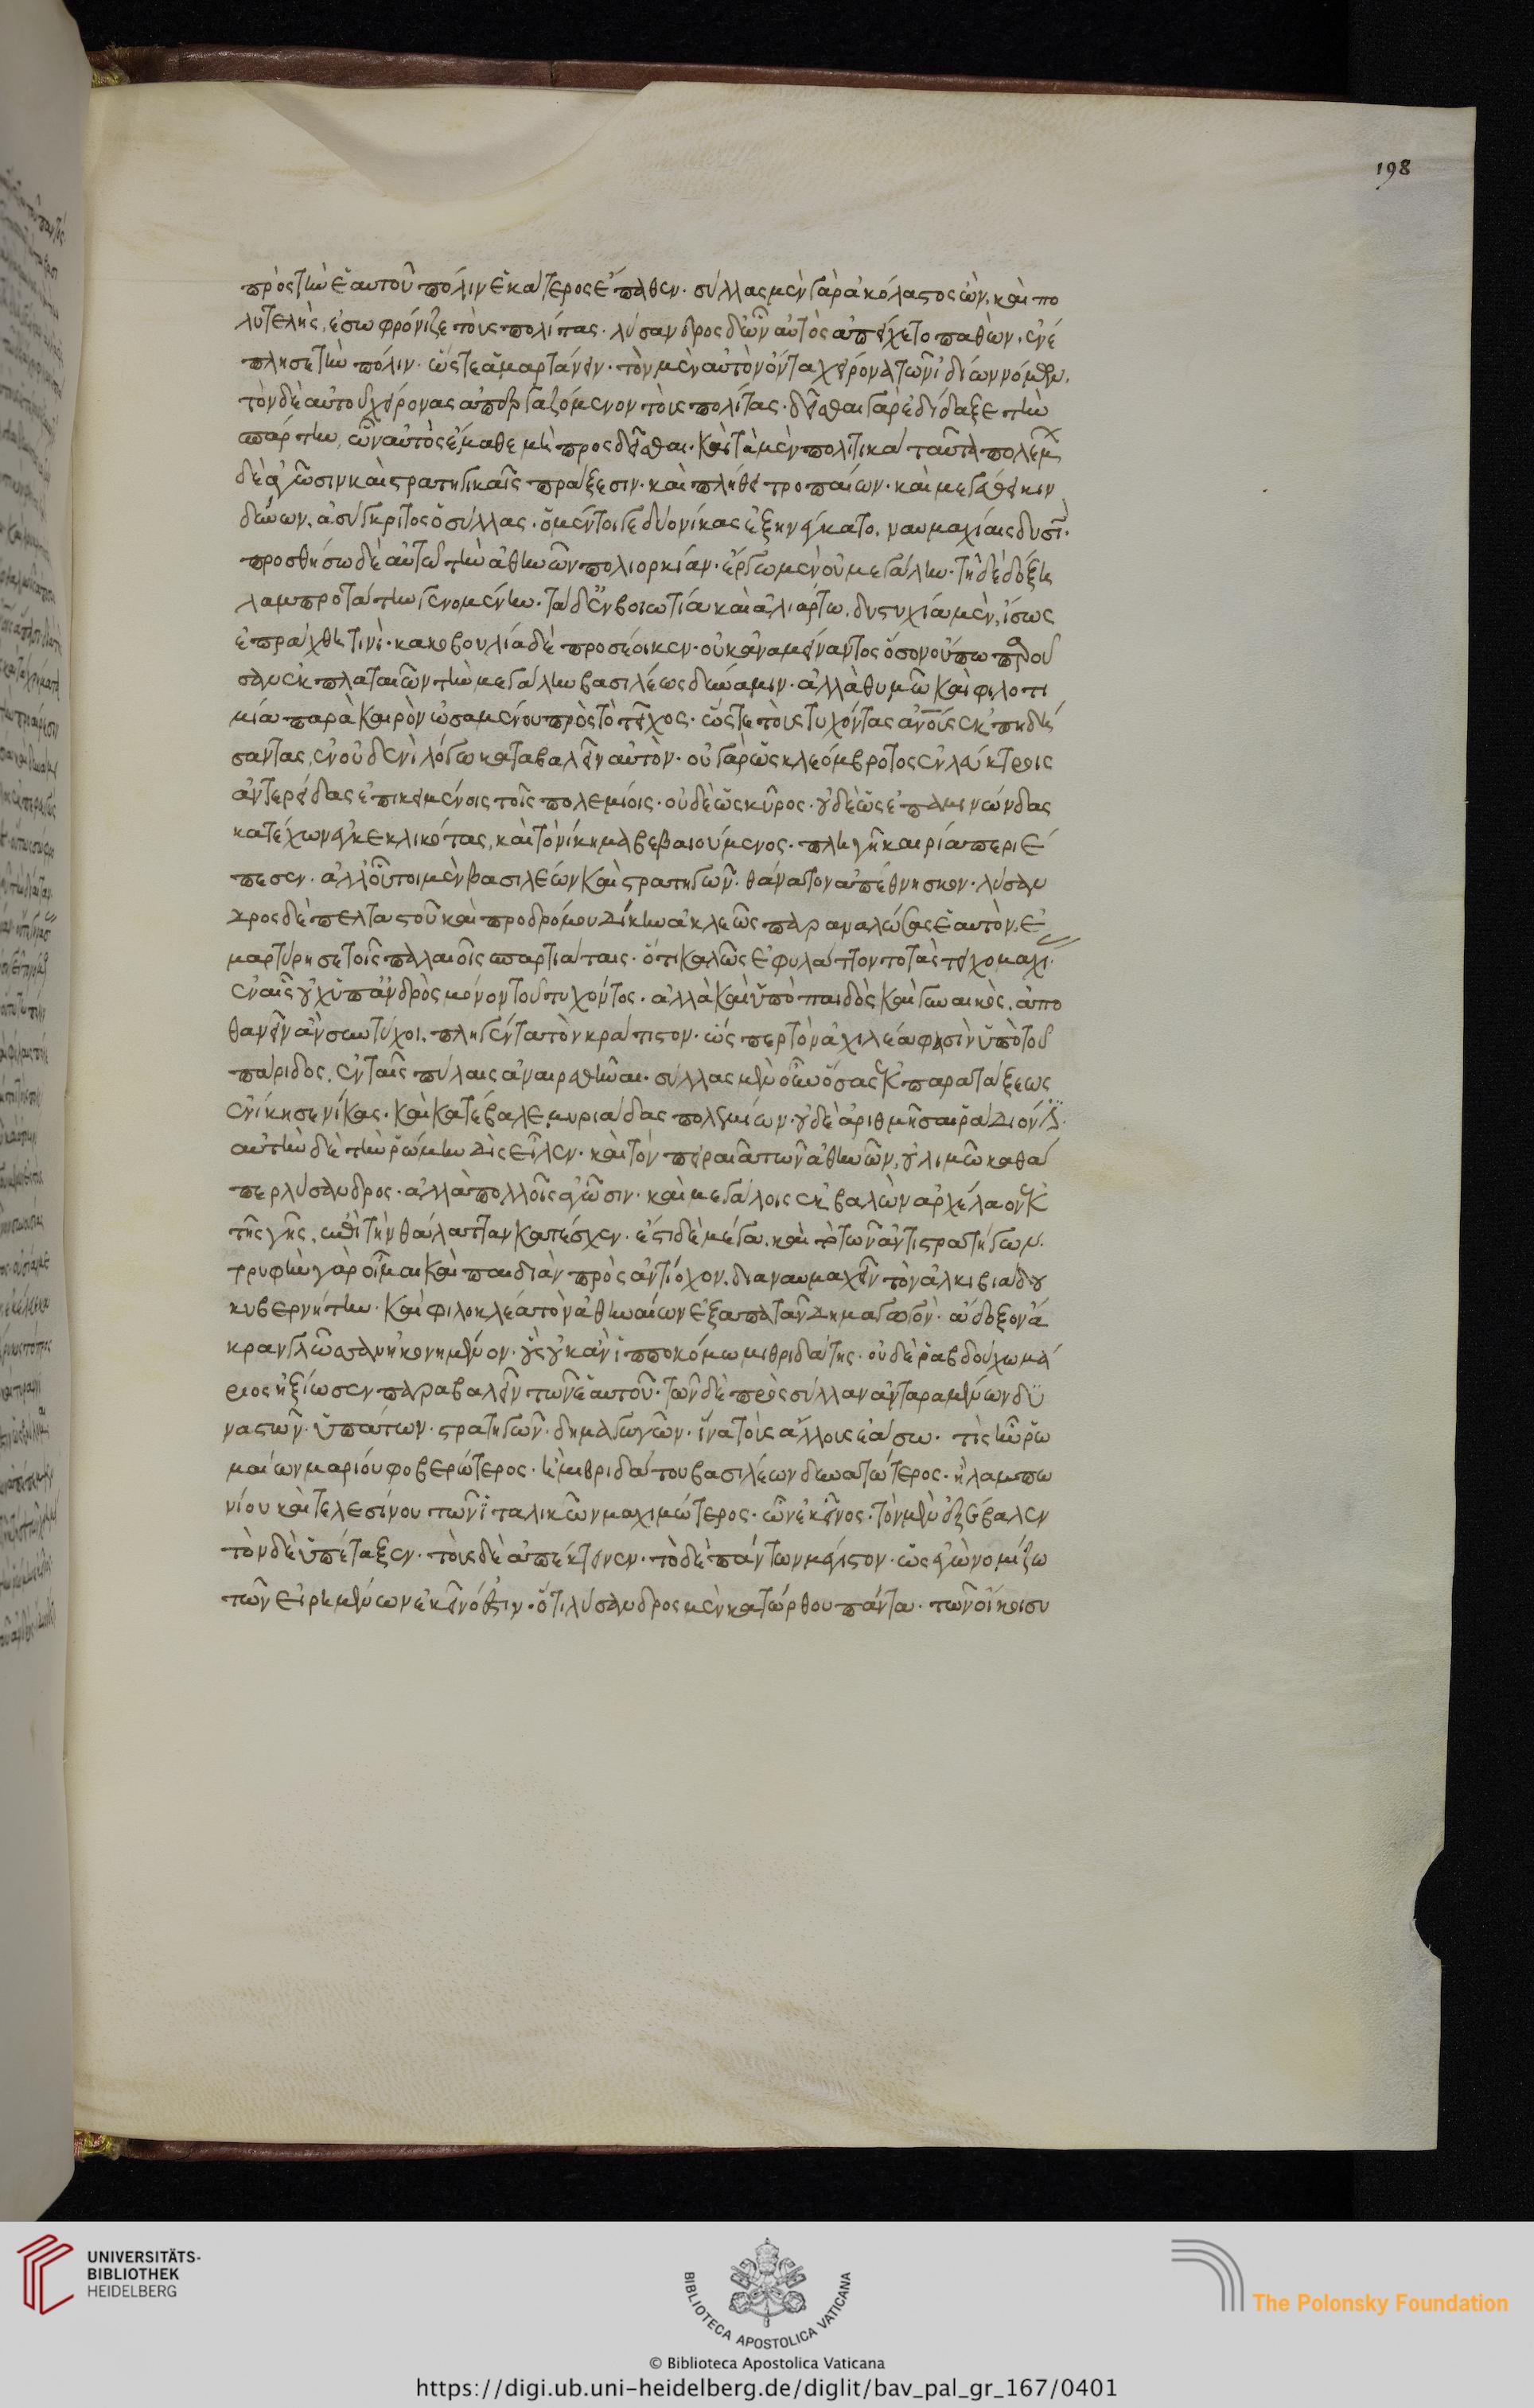 198
πρὸς τὴν ἑαυτοῦ πόλιν ἑκάτερος ἔπαθεν· σύλλας μὲν γὰρ ἀκόλαστος ὢν, καὶ πο
λυτελὴς, ἐσωφρόνιζε τοὺς πολίτας. λύσανδρος δ' ὧν αὐτὸς ἀπείχετο παθῶν, ἐνέ
πλησε τὴν πόλιν. ὥστε ἁμαρτάνειν· τὸν μὲν αὐτὸν ὄντα χείρονα τῶν ἰδίων νόμων,
τὸν δὲ αὐτοῦ χείρονας ἀπεργαζόμενον τοὺς πολίτας. δεῖσθαι γὰρ ἐδίδαξε τὴν
σπάρτην, ὧν αὐτὸς ἔμαθε μὴ προσδεῖσθαι. καὶ τὰ μὲν πολιτικὰ ταῦτα πολέμ
δὲ ἀγῶσιν καὶ στρατηγικαῖς πράξεσιν· καὶ πλήθει τροπαίων· καὶ μεγέθει κιν
δύνων, ἀσύγκριτος ὁ σύλλας. ὁ μέντοι γε δύο νίκας ἐξηνέγκατο, ναυμαχίαις δυσί.
προσθήσω δὲ αὐτῷ τὴν ἀθηνῶν πολιορκίαν· ἔργῳ μὲν οὐ μεγάλην· τῇ δὲ δόξῃ
λαμπροτάτην γενομένην. τὰ δ' ἐν βοιωτίᾳ καὶ ἁλιάρτῳ, δυστυχίᾳ μὲν, ἴσως
ἐπράχθη τινί· κακοβουλίᾳ δὲ προσέοικεν· οὐκ ἀναμείναντος ὅσον οὔπω παροῦ
σαν ἐκ πλαταιῶν τὴν μεγάλην βασιλέως δύναμιν· ἀλλὰ θυμῷ καὶ φιλοτι
μίᾳ παρὰ καιρὸν ὠσαμένου πρὸς τὸ τεῖχος· ὥστε τοὺς τυχόντας ἀνοις ἐκπηδή
σαντας, ἐν οὐδενὶ λόγῳ καταβαλεῖν αὐτὸν· οὐ γὰρ ὡς κλεόμβροτος ἐν λεύκτροις
ἀντερείδας ἐπικειμένοις τοῖς πολεμίοις· οὐδὲ ὡς κῦρος· οὐδὲ ὡς ἐπαμινώνδας
κατέχων ἐγκεκλικότας, καὶ τὸ νίκημα βεβαιούμενος· πληγῇ καιρίᾳ περιέ
πεσεν. ἀλλ' οὗτοι μὲν βασιλέων καὶ στρατηγῶν θάνατον ἀπέθνησκον· λύσαν
δρος δὲ πελταστοῦ καὶ προδρόμου δίκην ἀκλεῶς παραναλώσας ἑαυτὸν, ἐ
μαρτύρησε τοῖς παλαιοῖς σπαρτιάταις· ὅτι καλῶς ἐφυλάττοντο τὰς τειχομαχι
ἐν αἷς οὐχ ὑπ' ἀνδρὸς μόνον τοῦ τυχόντος· ἀλλὰ καὶ ὑπὸ παιδὸς καὶ γυναικὸς, ἀπο
θανεῖν ἂν συντύχοι, πληγέντα τὸν κράτιστον· ὥσπερ τὸν ἀχιλέα φησὶν ὑπὸ τοῦ
πάριδος, ἐν ταῖς πύλαις ἀναιρεθῆναι. σύλλας μὲν οὖν ὅσας ἐκ παρατάξεως
ἐνίκησε νίκας· καὶ κατέβαλε μυριάδας πολεμίων· οὐδὲ ἀριθμῆσαι ῥάδιόν
αὐτὴν δὲ τὴν ῥώμην δὶς εἷλεν· καὶ τὸν πειραιᾶ τῶν ἀθηνῶν, οὐ λιμῷ καθά
περ λύσανδρος· ἀλλὰ πολλοῖς ἀγῶσιν· καὶ μεγάλοις ἐκβαλὼν ἀρχέλαον ἐκ
τῆς γῆς, ἐπὶ τὴν θάλατταν κατέσχεν. ἔστι δὲ μέγα, καὶ τὸ τῶν ἀντιστρατήγων.
τρυφὴν γὰρ οἶμαι καὶ παιδιὰν πρὸς ἀντίοχον, διαναυμαχεῖν τὸν ἀλκιβιάδου
κυβερνήτην· καὶ φιλοκλέα τὸν ἀθηναίων ἐξαπατᾶν δημαγωγόν· ἄδοξον ἄ
κραν γλῶσσαν ἠκονημένον· οὓς οὐκ ἂν ἱπποκόμῳ μιθριδάτης· οὐδὲ ῥαβδούχῳ μά
ριος ἠξίωσεν παραβαλεῖν τῶν ἑαυτοῦ. τῶν δὲ πρὸς σύλλαν ἀνταραμένων δυ
ναστῶν· ὑπάτων· στρατηγῶν· δημαγωγῶν· ἵνα τοὺς ἄλλους ἐάσω· τίς ἦν ῥω
μαίων μαρίου φοβερώτερος· ἢ μιθριδάτου βασιλέων δυνατώτερος· ἢ λαμπω
νίου καὶ τελεσίνου τῶν ἰταλικῶν μαχιμώτερος· ὧν ἐκεῖνος· τὸν μὲν ἐξέβαλεν
τὸν δὲ ὑπέταξεν· τοὺς δὲ ἀπέκτεινεν. τὸ δὲ πάντων μέγιστον· ὡς ἐγὼ νομίζω
τῶν εἰρημένων ἐκεῖνό ἐστιν· ὅτι λύσανδρος μὲν κατώρθου πάντα· τῶν οἴκοι συ
UNIVERSITÄTS-
BIBLIOTHEK
HEIDELBERG
BIBLIOTECA APOSTOLICA VATICANA
The Polonsky Foundation
© Biblioteca Apostolica Vaticana
https://digi.ub.uni-heidelberg.de/diglit/bav_pal_gr_167/0401